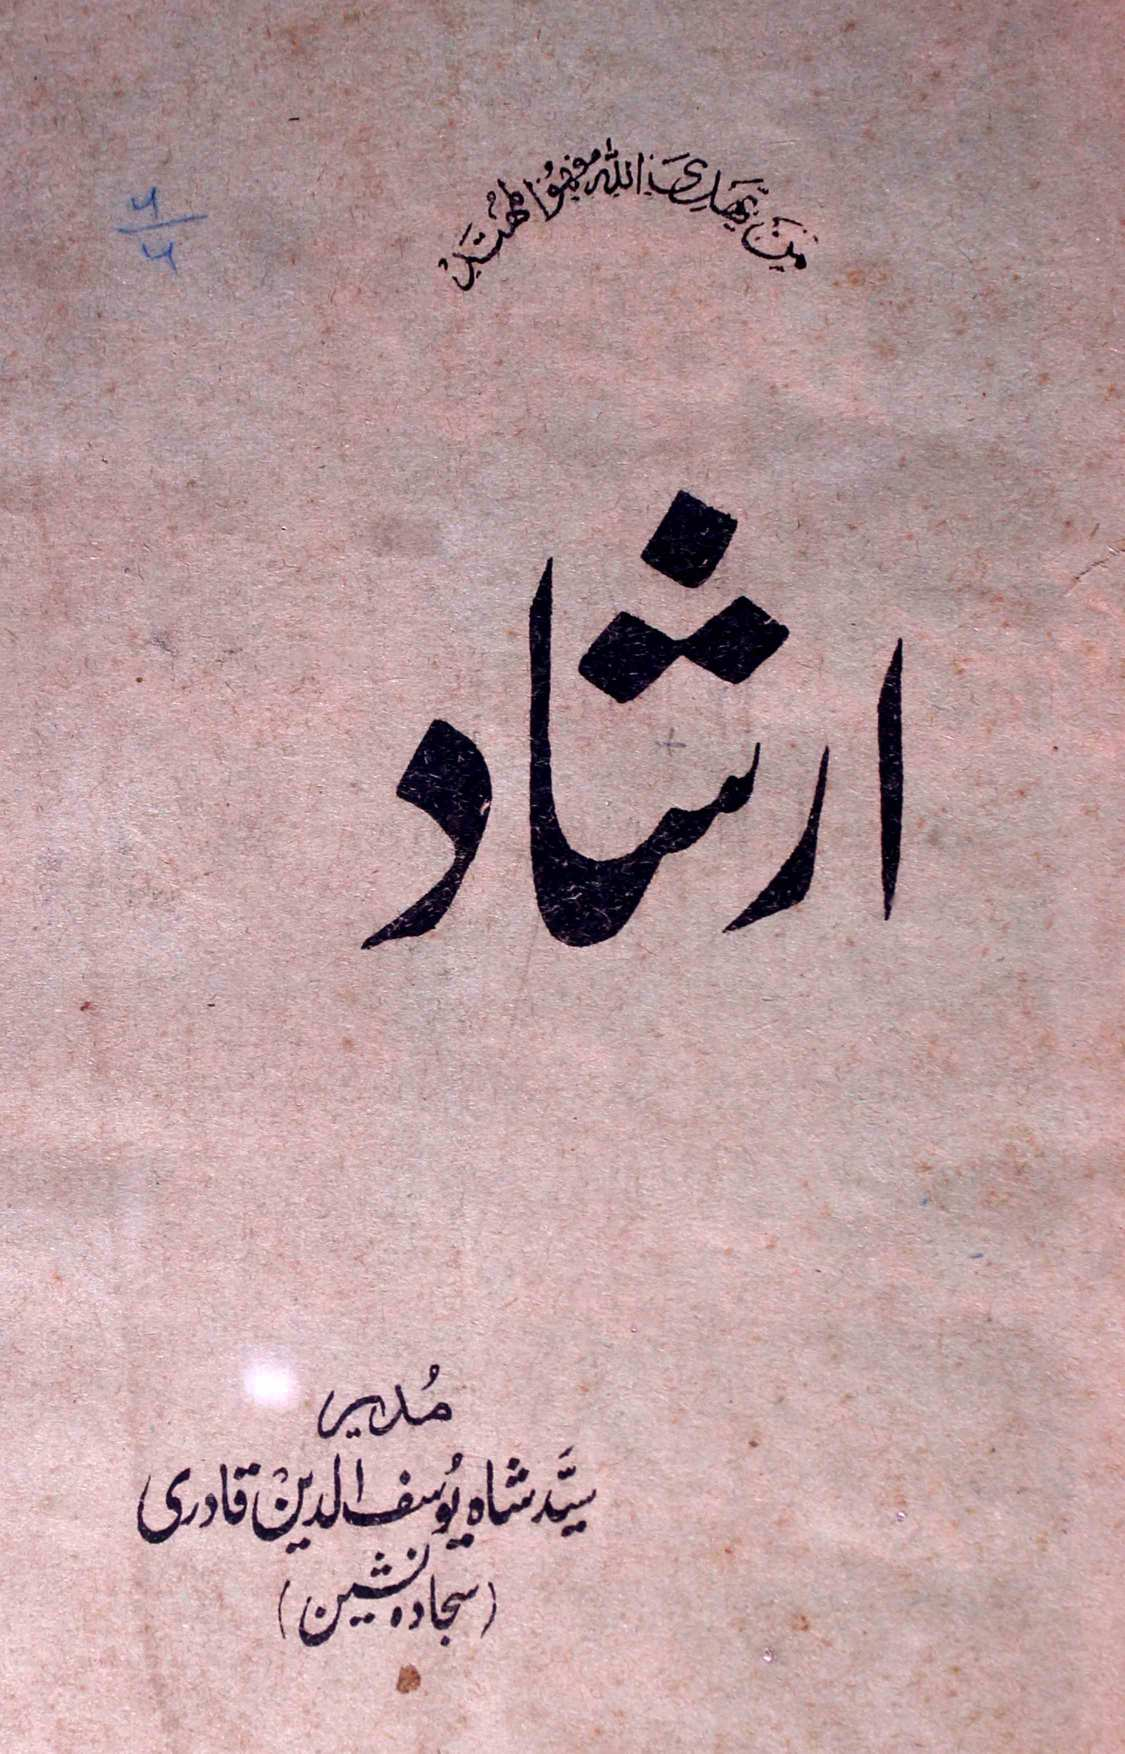 مَن يَهدِی اللہ فَهُوَ المُهتَدِ
۲
۴
ارشاد
مُدیر
سیَّد شاہ یُوسف الدین قادری
(سجادہ نشین)